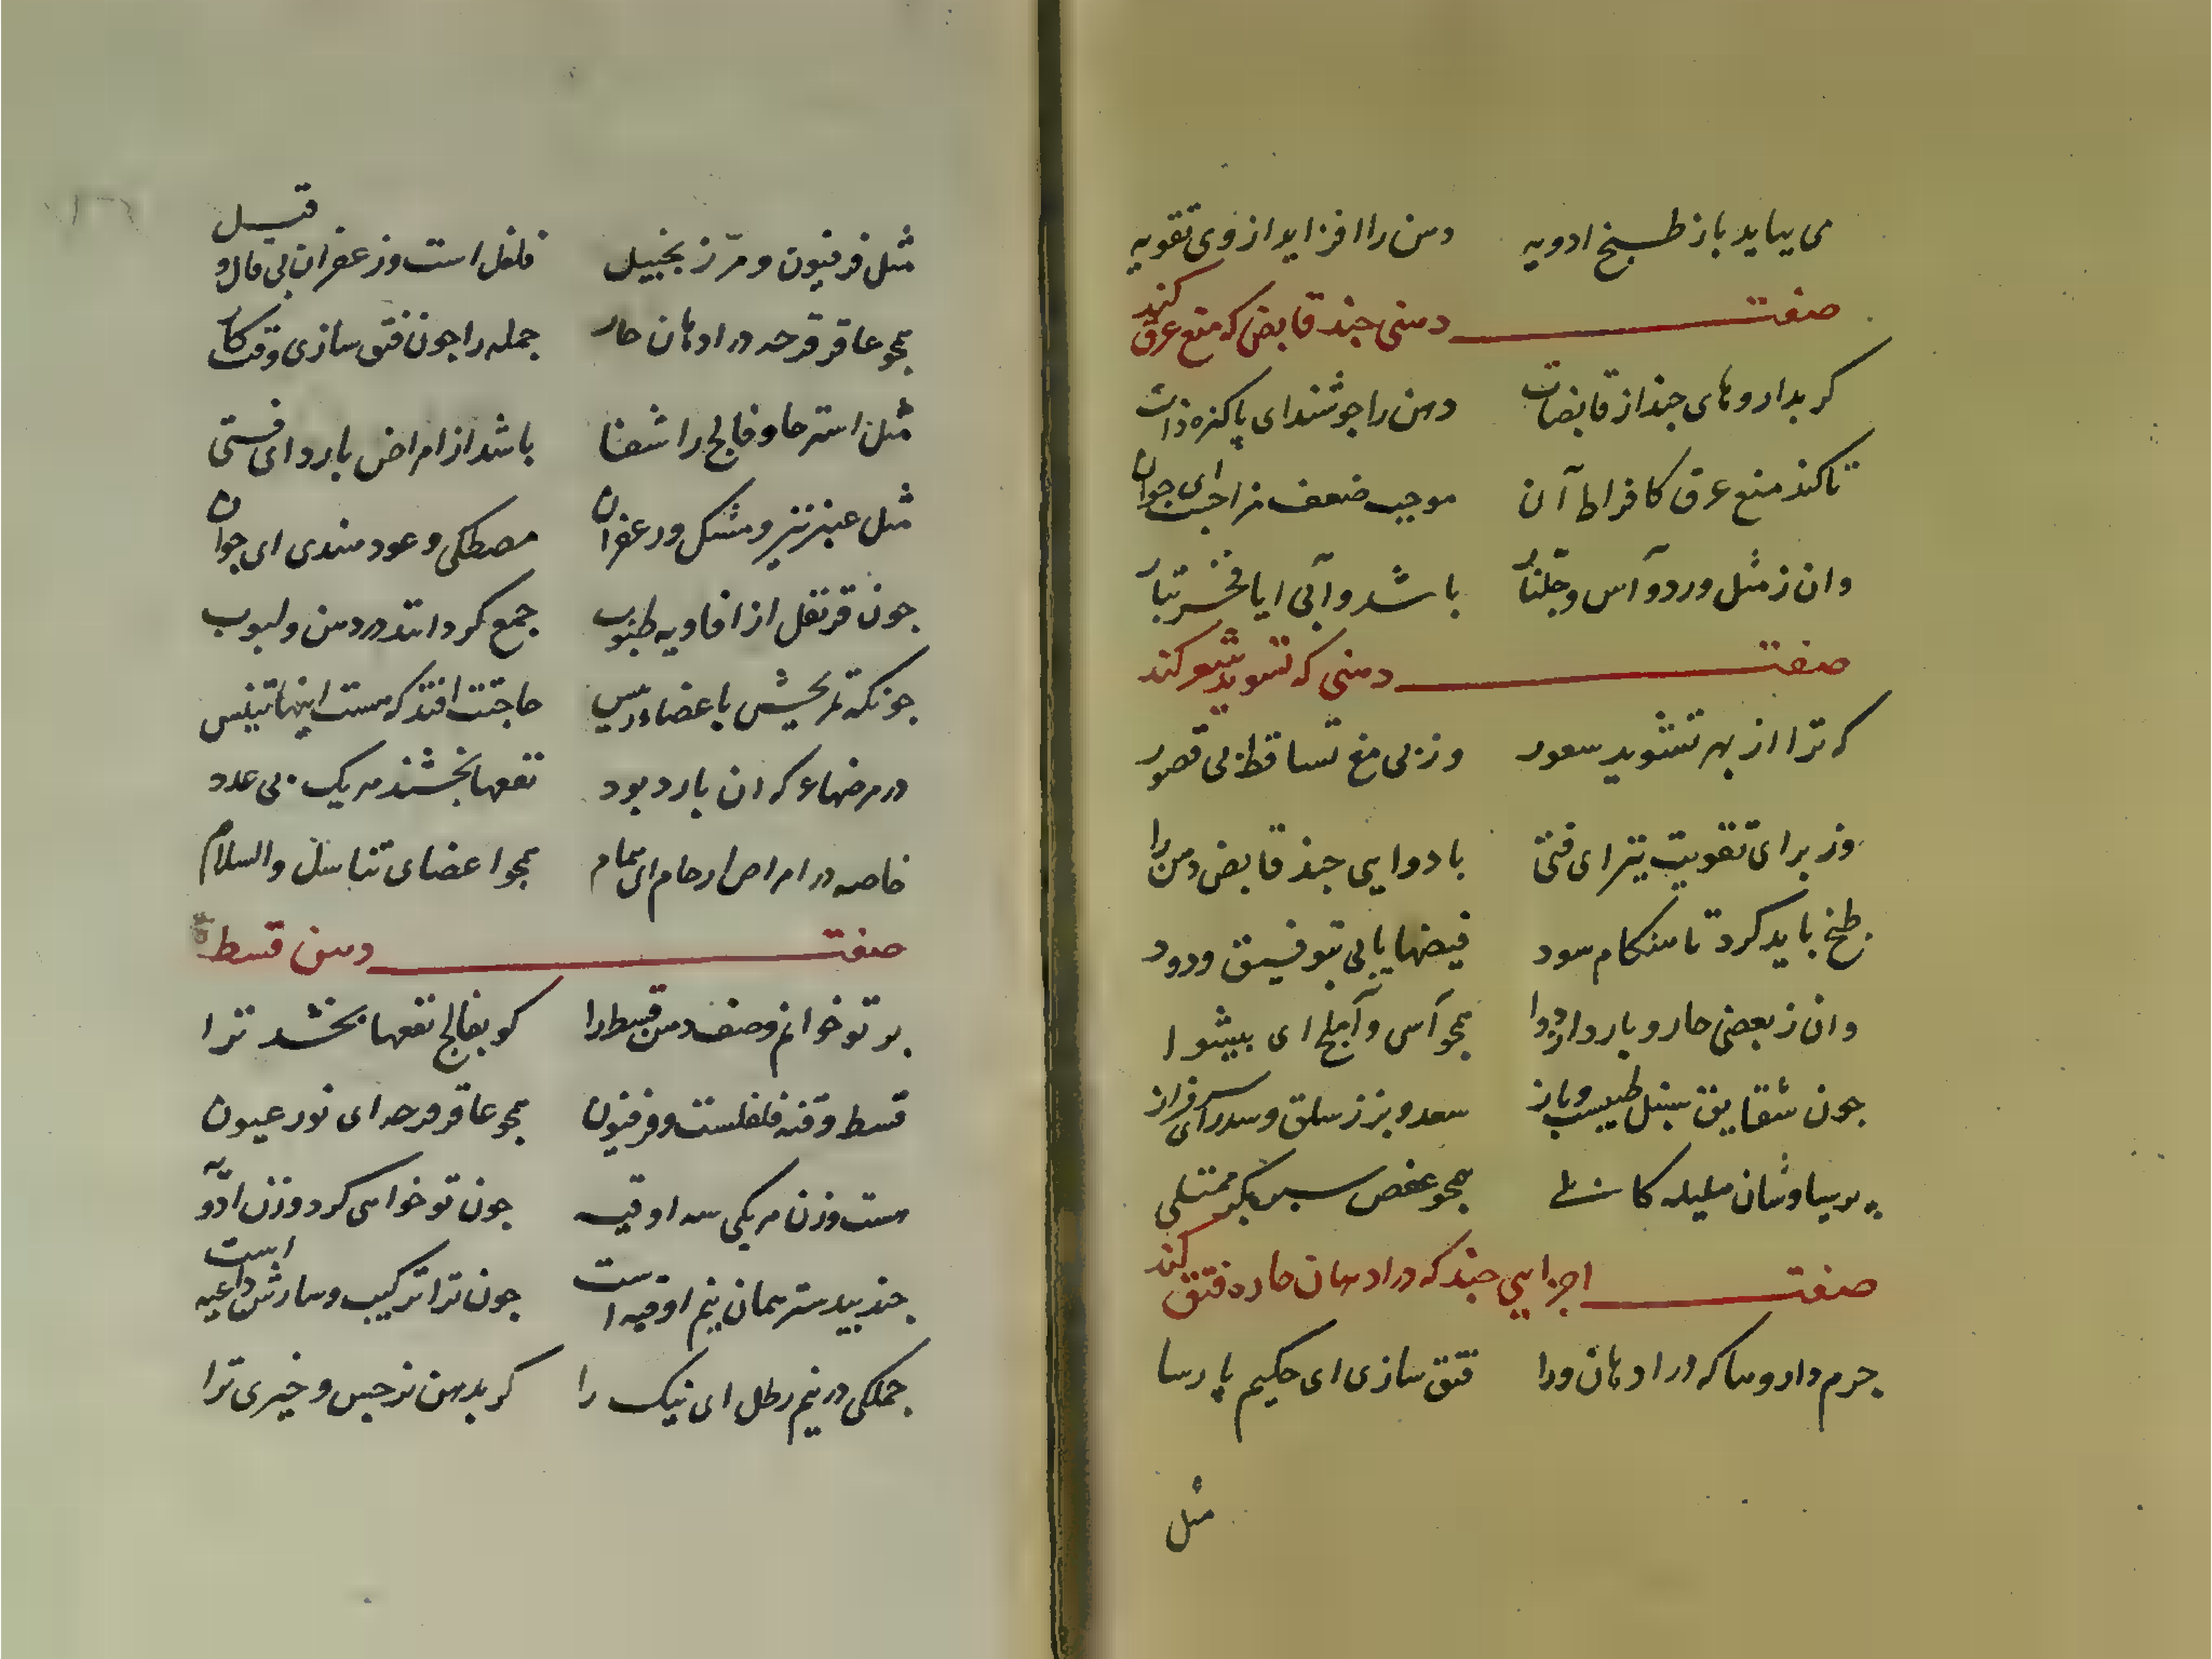 می بباید باز طبخ ادویه دهن را افزاید از وی تقویه
صفت دهنی چند قابض که منع عرق کند
کر بداروهای چند از قابضات دهن را جوشند ای پاکزه ذات
تا کند منع عرق کافراط آن موجب ضعف مزاجست ای جوان
وان ز مثل ورد و آس و جلنار باشد و آبی ایا فخر تبار
صفت دهنی که تسوید شعر کند
که ترا از بهر تسوید سعور وز پی منع تساقط بی قصور
وز برای تقویت نیز ای فتی با دوایی چند قابض دهن را
طبخ باید کرد تا هنکام سود فیضها یابی بتوفیق ودود
وان ز بعضی حار و بارد از دوا همجو آس و آملج ای پیشوا
جون شقایق سنبل طیب و باز سعد و بزر سلق و سدر ای سرفراز
پرسیاوشان هلیله کابلی همجو عفص سبز یکبر ممتلی
صفت اجزایی جند که در ادهان حاره فتق کند
جرم داروها که در ادهان ورا فتق سازی ای حکیم پارسا
مثل
مثل فرفیون و مرّ زنجبیل فلفل است وز عفران بی قال و قیل
همجو عاقرقرحه در ادهان حار جمله را جون فتق سازی وقت کار
مثل استرخا و فالج را شفا باشد از امراض بارد ای فتی
مثل عنبر نیز و مشک و زعفران مصطکی و عود هندی ای جوان
جون قرنفل از افاویه طیوب جمع کرد اند در دهن و لبوب
جونکه تمریخش باعضاء رئیس حاجتت افتد که هست اینها نفیس
در مرضهاء که ان بارد بود نفعها بخشند هر یک بی عدد
خاصه در امراض ارحام ای همام همجو اعضای تناسل والسلام
صفت دهن قسط
بر تو خوانم وصف دهن قسط را کو بفالج نفعها بخشد ترا
قسط و قنه فلفلست و فرفیون همجو عاقرقرحه ای نور عیون
هست وزن هر یکی سه اوقیه جون تو خواهی کرد وزن ادویه
جند بیدستر همان نیم اوقیه است جون ترا ترکیب و سازش داعیه است
جملکی در نیم رطل ای نیک را کر بدهن نرجس و خیری ترا